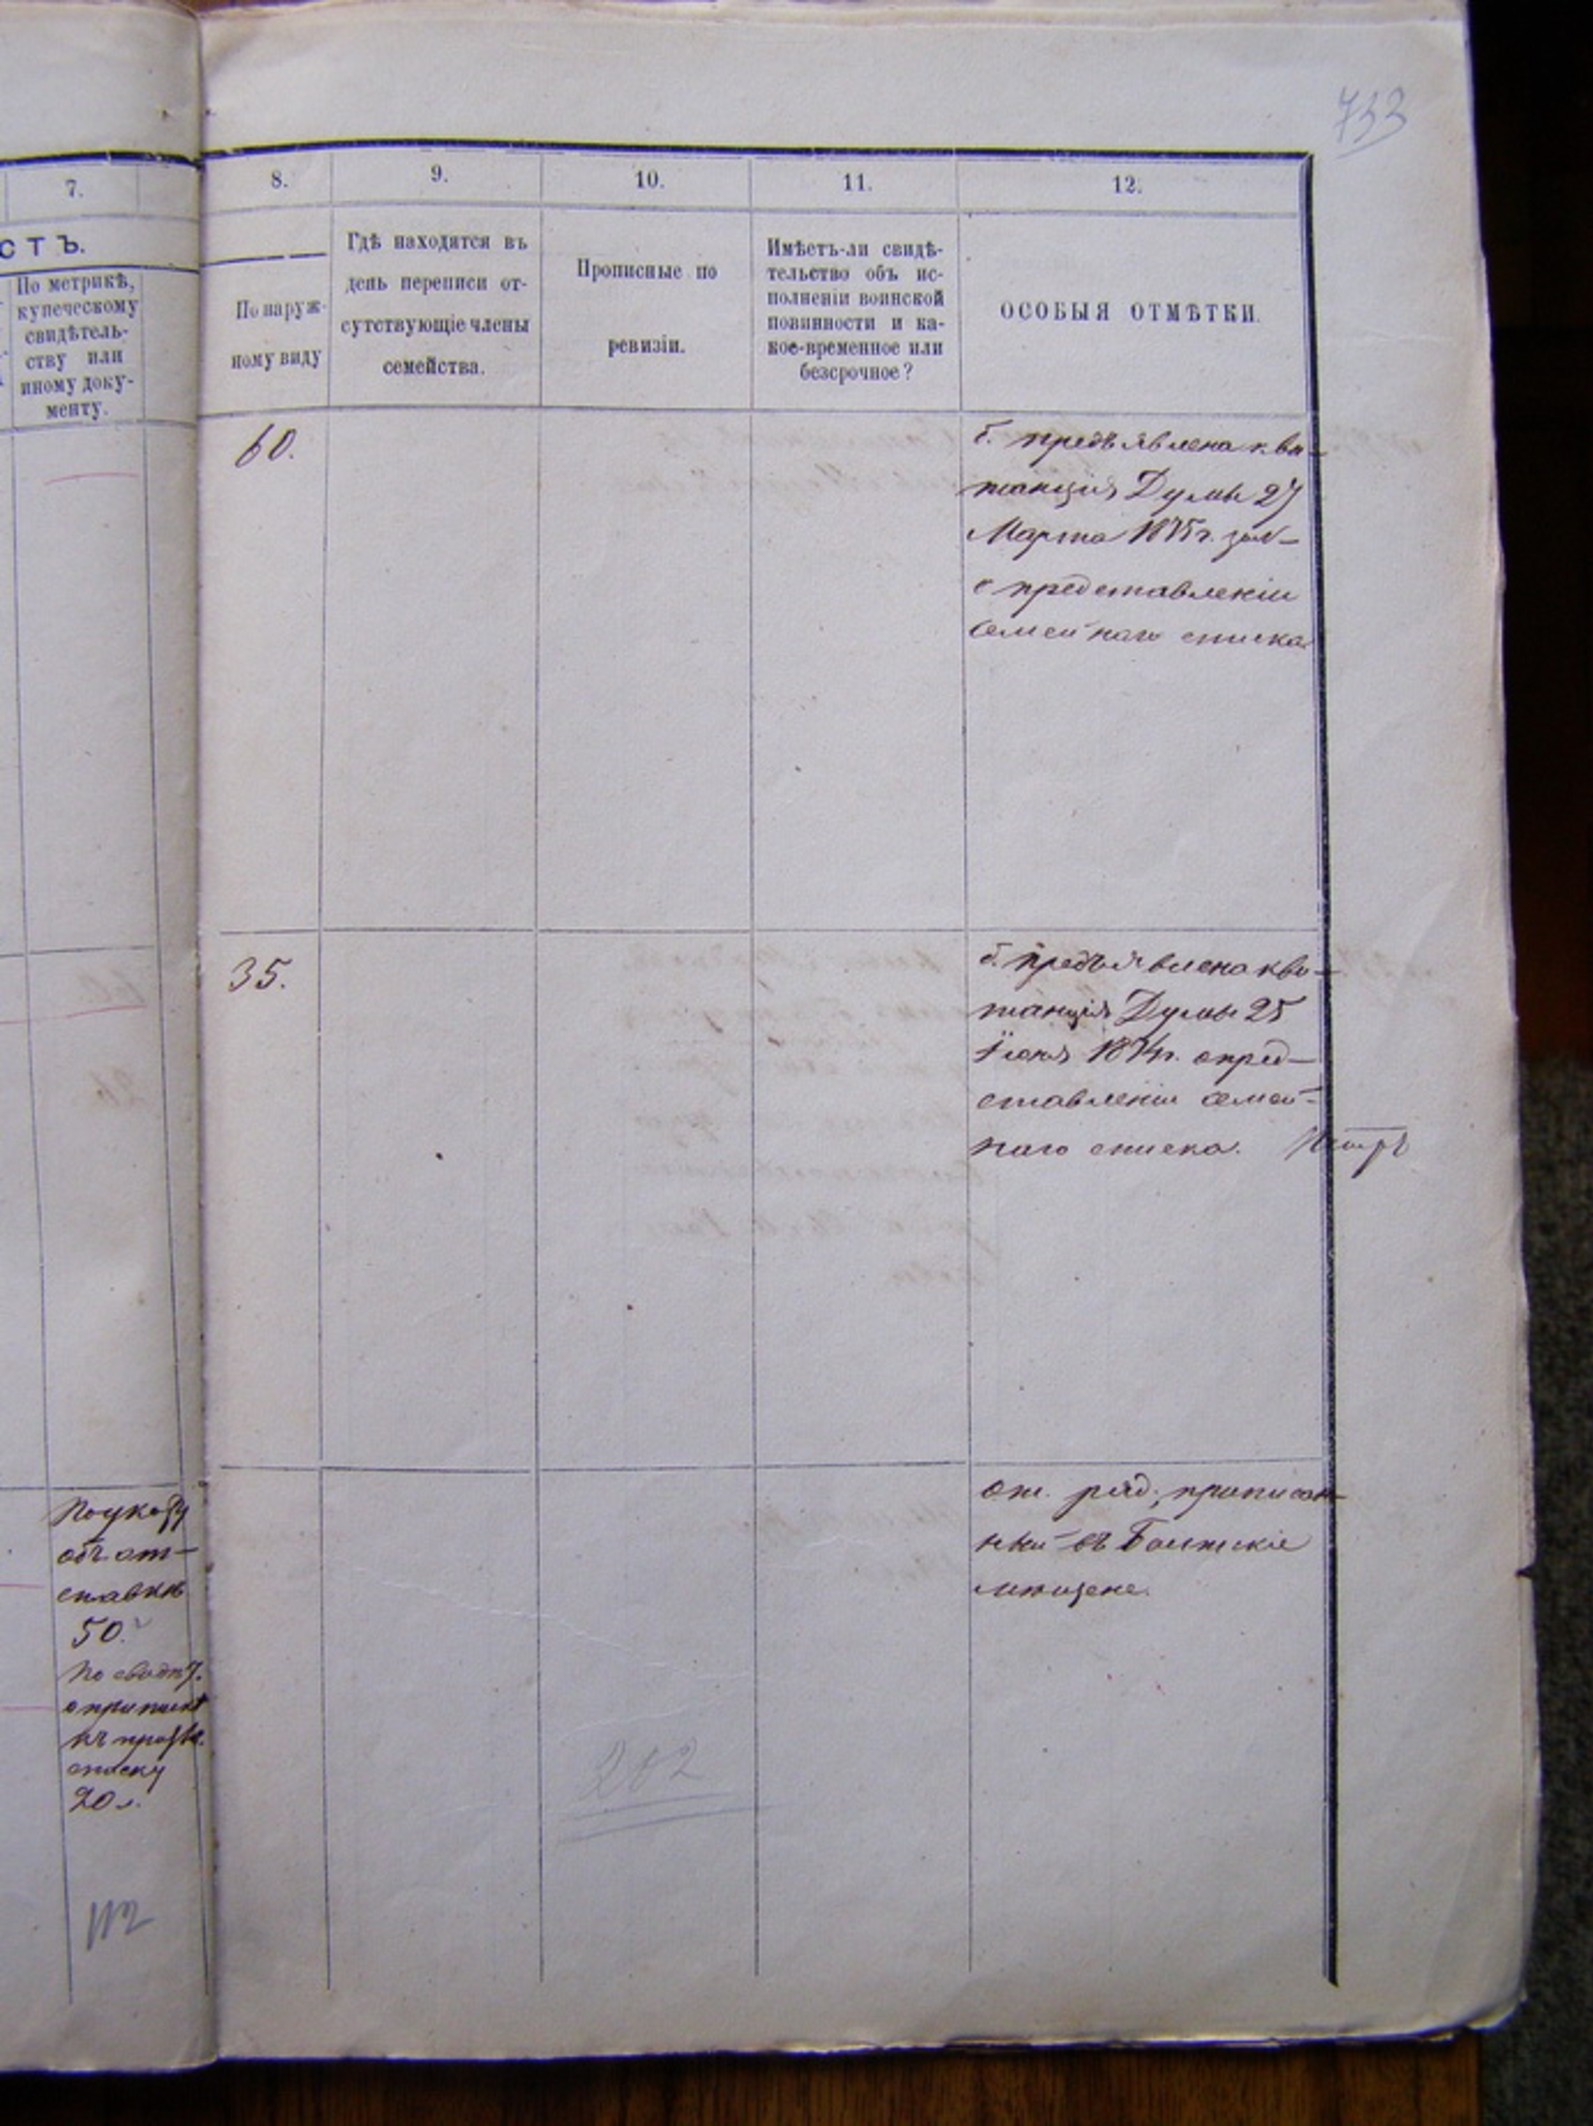 733
7.
8.
9.
10.
11.
12.
СТЪ.
По метрикѣ,
купеческому
свидѣтель-
ству или
иному доку-
менту.
По наруж-
ному виду
Гдѣ находятся въ
день переписи от-
сутствующіе члены
семейства.
Прописные по
ревизіи.
Имѣетъ-ли свидѣ-
тельство объ ис-
полненіи воинской
повинности и ка-
кое-временное или
безсрочное?
ОСОБЫЯ ОТМѢТКИ.
60.
б. предъявлена кви-
танція Думы 27
Марта 1875 г.
о представленіи
семейнаго списка
35.
б. предъявлена кви-
танція Думы 25
Іюня 1874 г. о пред-
ставленіи семей-
наго списка.
По указу
объ от-
ставкѣ
50.
о припискѣ
къ
списку
20
от. ряд. приписан-
ный въ Балтскіе
мѣщане.
202
112